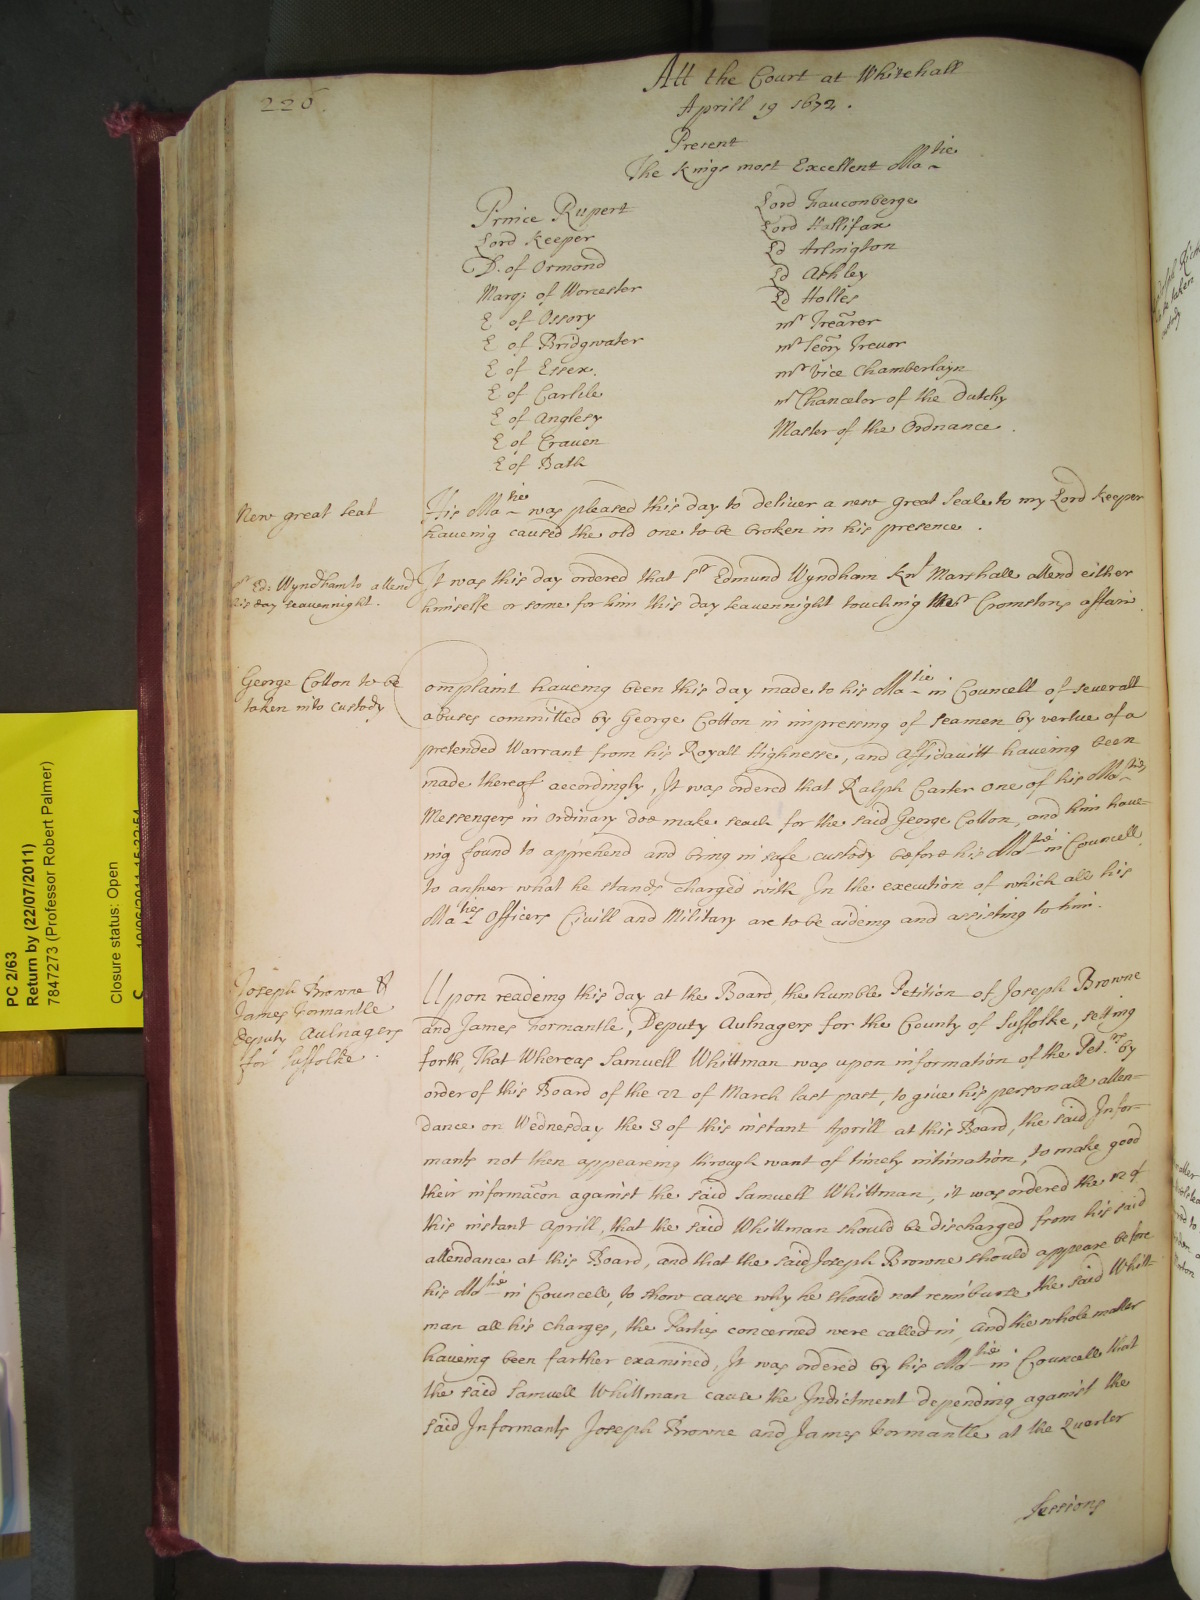 226
Att the Court at Whitehall
Aprill 19 1672.
Present
The Kings most Excellent Ma tie
Prince Rupert
Lord Keeper
D. of Ormond
Marq; of Worcester
E of Ossory
E of Bridgwater
E of Essex.
E of Carlile
E of Anglesy
E of Craven
E of Bath
Lord Fauconberge
Lord Hallifax
Ld Arlington
Ld Ashley
Ld Holles
mr Treãrer
mr Secry Trevor
mr Vice Chamberlayn
mr Chancelor of the Dutchy
Master of the Ordnance.
New great Seal
His Ma tie was pleased this day to deliver a new great Seale to my Lord Keeper
haveing caused the old one to be broken in his presence.
Sr Ed: Wyndham to attend
this day seavennight.
It was this day ordered that Sr Edmund Wyndham Knt Marshall attend either
himselfe or some for him this day seavennight touching Cromstons affair.
George Cotton to be
taken into custody
Complaint haveing been this day made to his Ma tie in Councell of severall
abuses committed by George Cotton in impressing of Seamen by vertue of a
pretended Warrant from his Royall Highnesse, and Affidavitt haveing been
made thereof accordingly, It was ordered that Ralph Carter one of his Ma ties
Messengers in Ordinary doe make seach for the said George Cotton, and him have-
ing found to apprehend and bring in safe custody before his Ma tie in Councell,
to answer what he stands charged with In the execution of which all his
Ma ties Officers Civill and Military are to be aideing and assisting to him.
Joseph Browne &
James Formantle
Deputy Aulnagers
for Suffolke.
Upon readeing this day at the Board, the humble Petition of Joseph Browne
and James Formantle, Deputy Aulnagers for the County of Suffolke, setting
forth, That Whereas Samuell Whittman was upon information of the Pet.rs by
order of this Board of the 22 of March last past, to give his personall atten-
dance on Wednesday the 3 of this instant Aprill at this Board, the said Infor-
mants not then appeareing through want of timely intimation, to make good
their informacõn against the said Samuell Whittman, it was ordered the 12 of
this instant Aprill, that the said Whittman should be discharged from his said
attendance at this Board, and that the said Joseph Browne should appeare before
his Ma tie in Councell, to show cause why he should not reimburse the said Whitt-
man all his charges, the Parties concerned were called in, and the whole matter
haveing been farther examined, It was ordered by his Ma tie in Councell that
the said Samuell Whittman cause the Indictment depending against the
said Informants Joseph Browne and James Formantle at the Quarter
Sessions
PC 2/63
Return by (22/07/2011)
7847273 (Professor Robert Palmer)
Closure status: Open
to be taken
custody